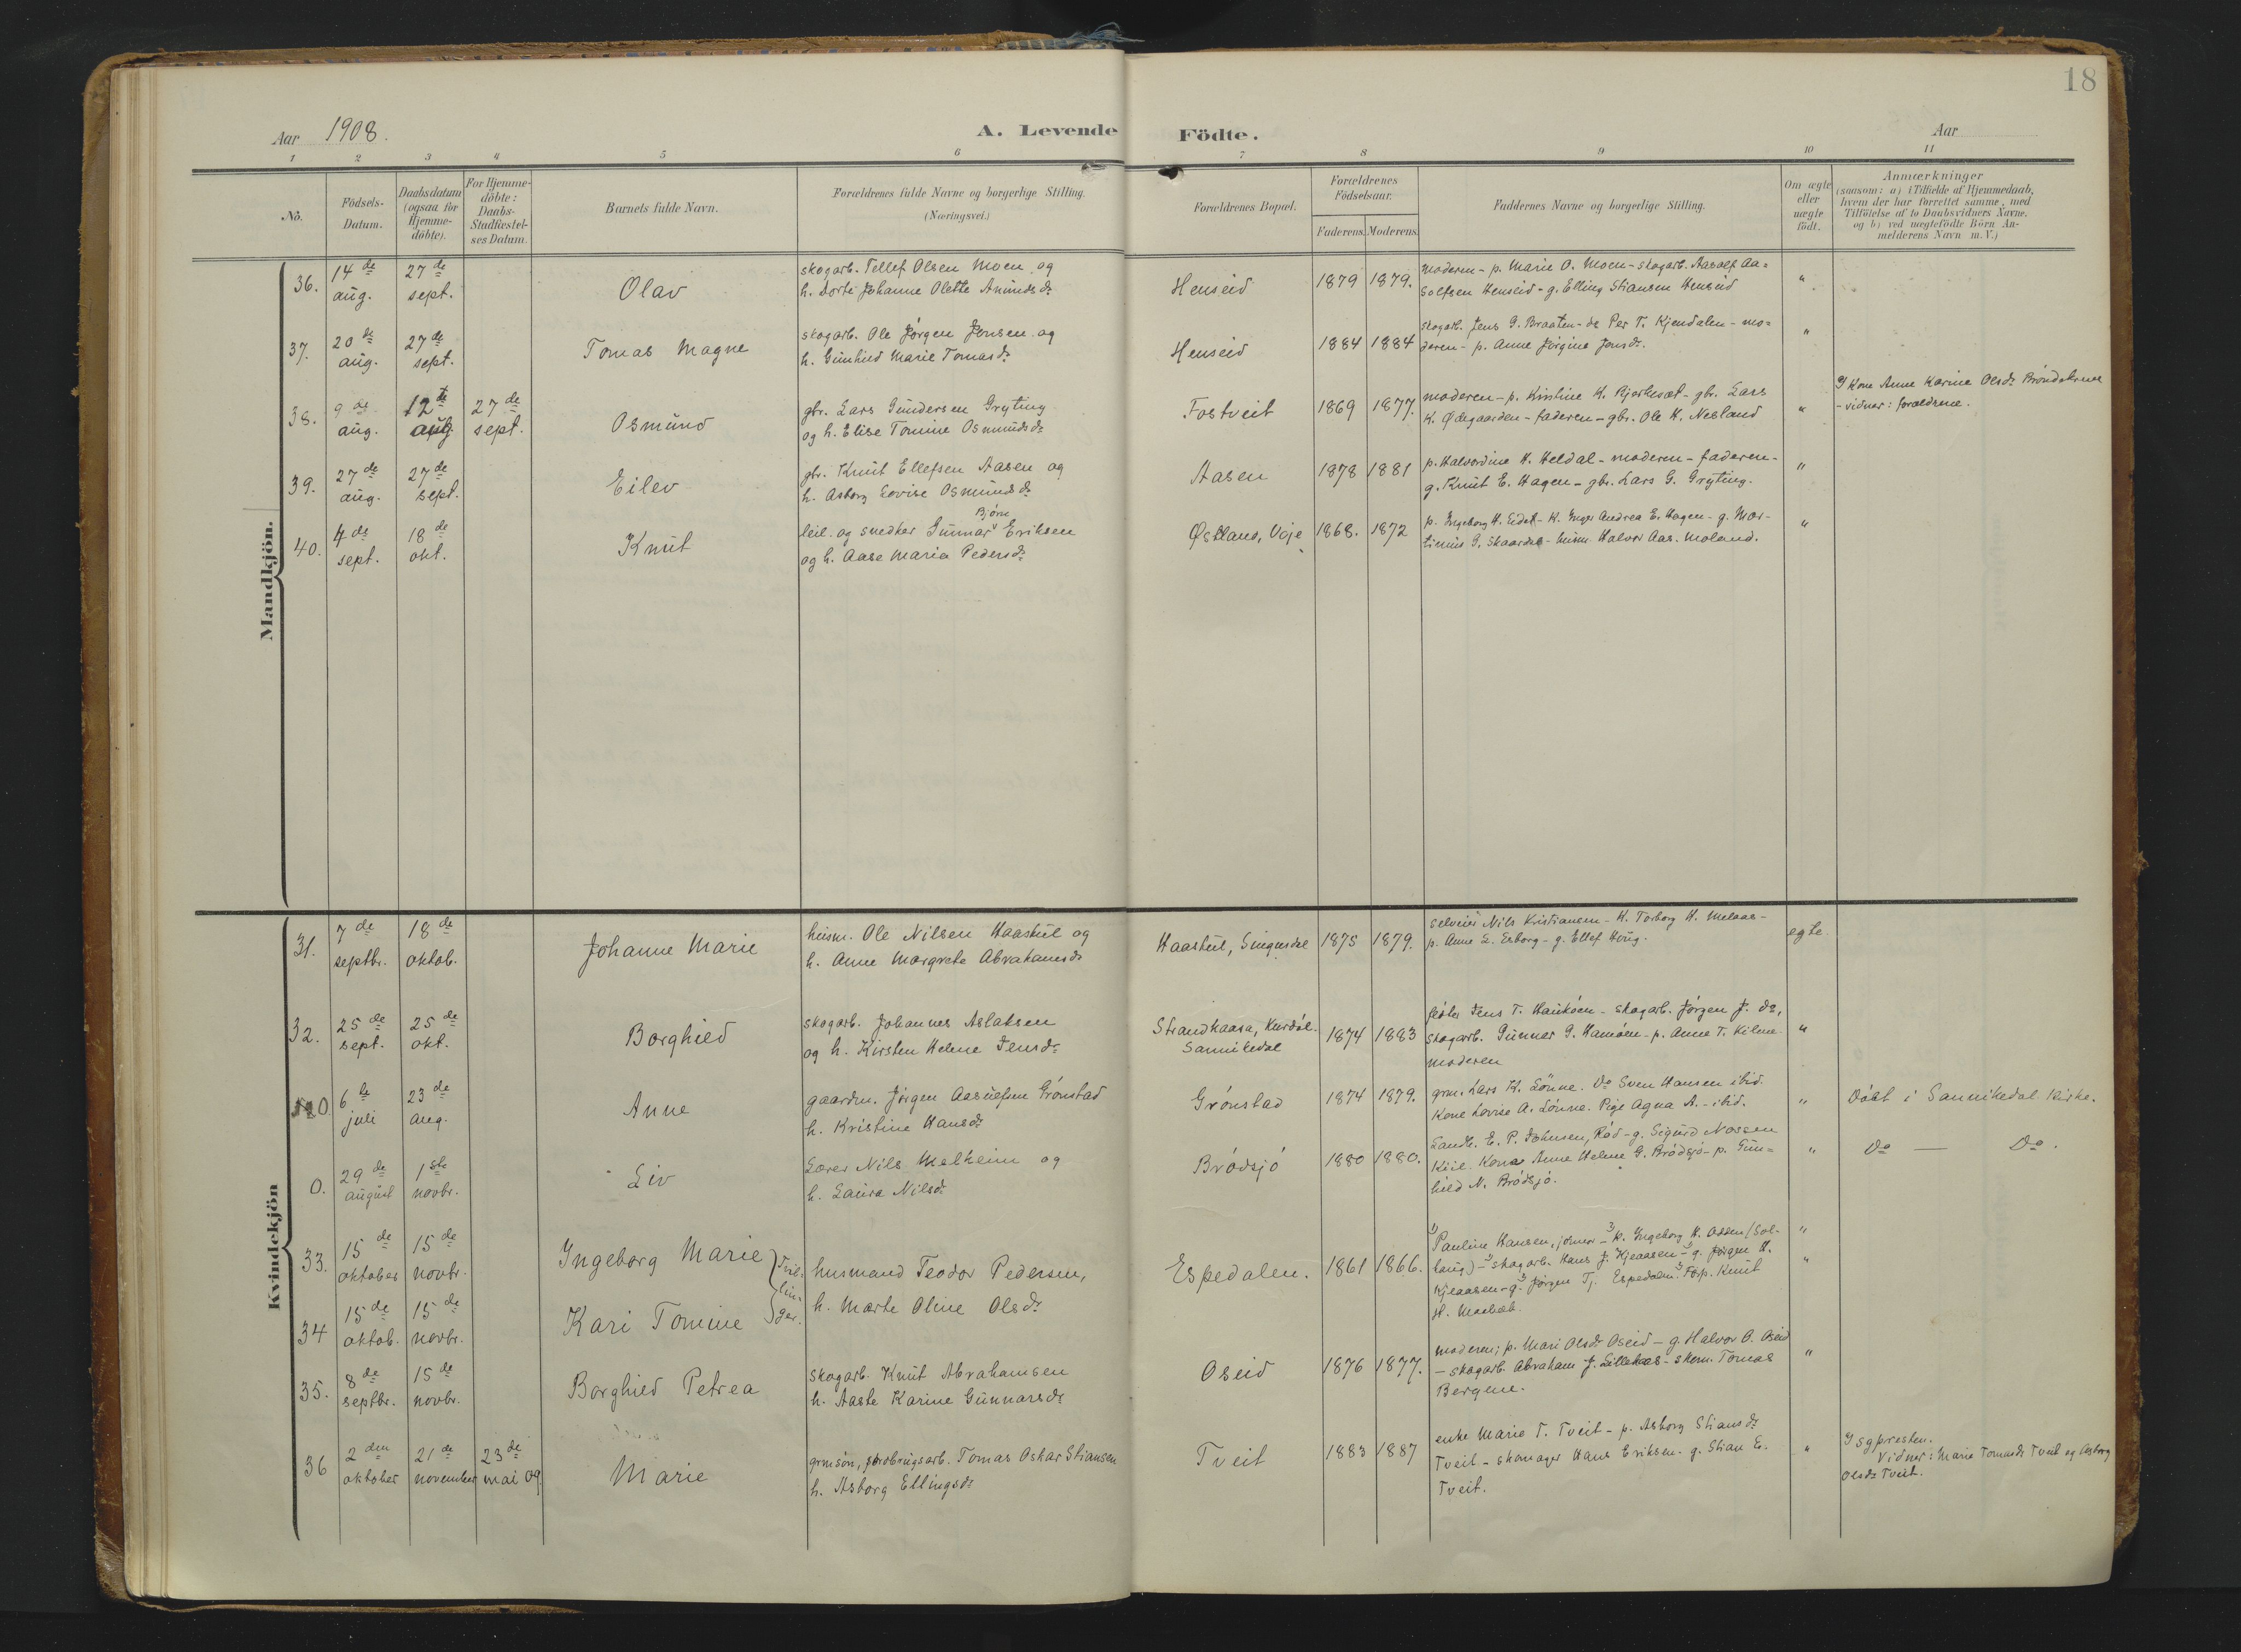 18
Aar 1908.
A. Levende Födte.
Aar
1 2 3 4 5 6 7 8 9 10 11
No.
Födsels-
Datum.
Daabsdatum
(ogsaa for
Hjemme-
döbte).
For Hjemme-
döbte:
Daabs-
Stadfæstel-
ses Datum.
Barnets fulde Navn.
Forældrenes fulde Navne og borgerlige Stilling.
(Næringsvei.)
Forældrenes Bopæl.
Forældrenes
Födselsaar.
Faderens. Moderens.
Faddernes Navne og borgerlige Stilling.
Om ægte
eller
uægte
födt.
Anmærkninger
(saasom: a) i Tilfælde af Hjemmedaab,
hvem der har forrettet samme, med
Tilföielse af to Daabsvidners Navne,
og b) ved uægtefödte Börn An-
melderens Navn m. V.)
Mandkjön.
36.
14 de
aug.
27 de
sept.
Olav
skogarb. Tellef Olsen Moen og
h. Dorte Johanne Olette Anundsdr
Henseid
1879 1879.
moderen - p. Marie O. Moen - skogarb. Aasolf Aa=
solfsen Henseid - g. Elling Stiansen Henseid
"
37.
20 de
aug.
27 de
sept.
Tomas Magne
skogarb. Ole Jørgen Jensen og
h. Gunhild Marie Tomasdr
Henseid
1884 1884
skogarb. Jens G. Braaten - do Per T. Kjendalen - mo=
deren - p. Anne Jørgine Jensdr.
"
38.
9 de
aug.
12 te
aug.
27 de
sept.
Osmund
gbr. Lars Gundersen Gryting
og h. Elise Tomine Osmundsdr
Fostveit
1869 1877.
moderen - p. Kristine K. Bjerkeset - gbr. Lars
K. Ødegaarden - faderen - gbr. Ole K. Nesland
"
Kone Anne Karine Olsdr
- vidner: foreldrene.
39.
27 de
aug.
27 de
sept.
Eilev
gbr. Knut Ellefsen Aasen og
h. Asborg Lovise Osmundsdr
Aasen
1878 1881
p. Halvordine H. Heldal - moderen - faderen -
g. Knut E. Hagen - gbr. Lars G. Gryting.
"
40.
4 de
sept.
18 de
okt.
Knut
Bjørn
leil. og snedker Gunnar Eriksen
og h. Aase Maria Pedersdr
Østland, Voje
1868. 1872
p. Ingeborg H. Eidet - K. Inger Andrea E. Hagen - g. Mar-
tinius G. Skaardal - husm. Halvor Aas. Moland.
"
Kvindekjön
31.
7 de
septbr.
18 de
oktob.
Johanne Marie
husm. Ole Nilsen Haastul og
h. Anne Margrete Abrahamsdr
Haastul, Singusdal
1875 1879.
selveier Nils Kristiansen - K. Torborg H. Melaas -
p. Anne E. Esborg - g. Ellef Haug.
egte.
32.
25 de
sept.
25 de
okt.
Borghild
skogarb. Johannes Aslaksen
og h. Kirsten Helene Jensdr
Strandkaasa,
Sannikedal
1874 1883
Jens T. Haukøen - skogarb. Jørgen J. do,
skogarb. Gunnar G. Hamøen - p. Anne T. Kilene
moderen
"
0
6 te
juli
23 de
aug.
Anne
gaardm. Jørgen Aasulfsen Grønstad
h. Kristine Hansdr
Grønstad
1874 1879.
grm. Lars K. Lønne. Do Sven Hansen ibid.
Kone Lovise A. Lønne. Pige Agna A. - ibid.
"
Døbt i Sannikedal kirke.
0.
29 de
august
1 ste
novbr.
Liv
Lærer Nils Melheim og
h. Laura Nilsdr
Brødsjø
1880 1880.
Landh. E. P. Johnsen, Rød - g. Sigurd Nossen
Kiil. Kone Anne Helene G. Brødsjø - p. Gun=
hild N. Brødsjø.
"
Do — Do.
33.
15 de
oktober
15 de
novbr.
Ingeborg Marie
34
15 de
oktob.
15 de
novbr.
Kari Tomine
Tvil-
lin-
ger.
husmand Teodor Pedersen,
h. Marte Oline Olsdr
Espedalen.
1861 1866.
Pauline Hansen, jomor - k. Ingeborg H. Ossen (Sol-
haug) - skogarb. Hans J. Kjeaasen - g. Jørgen H.
Kjeaasen - g. Jørgen Tj. Espedalen. Fp. Knut
H. Maebæk.
"
"
35.
8 de
septbr.
15 de
novbr.
Borghild Petrea
skogarb. Knut Abrahamsen
h. Aaste Karine Gunnarsdr
Oseid
1876 1877.
moderen; p. Mari Olsdr Oseid - g. Halvor O. Oseid
- skogarb. Abraham J. Lillekaas - skom. Tomas
Bergene.
"
36
2 den
oktober
21 de
november
23 de
mai 09.
Marie
grmsøn, grubrigsarb. Tomas Oskar Stiansen
h. Asborg Ellingsdr
Tveit
1883 1887
enke Marie T. Tveit - p. Asborg Stiansdr
Tveit - skomager Hans Eriksen - g. Stian E.
Tveit.
"
Sgpresten.
Vidner: Marie Tomasdr Tveit og Asborg
Olsdr Tveit.